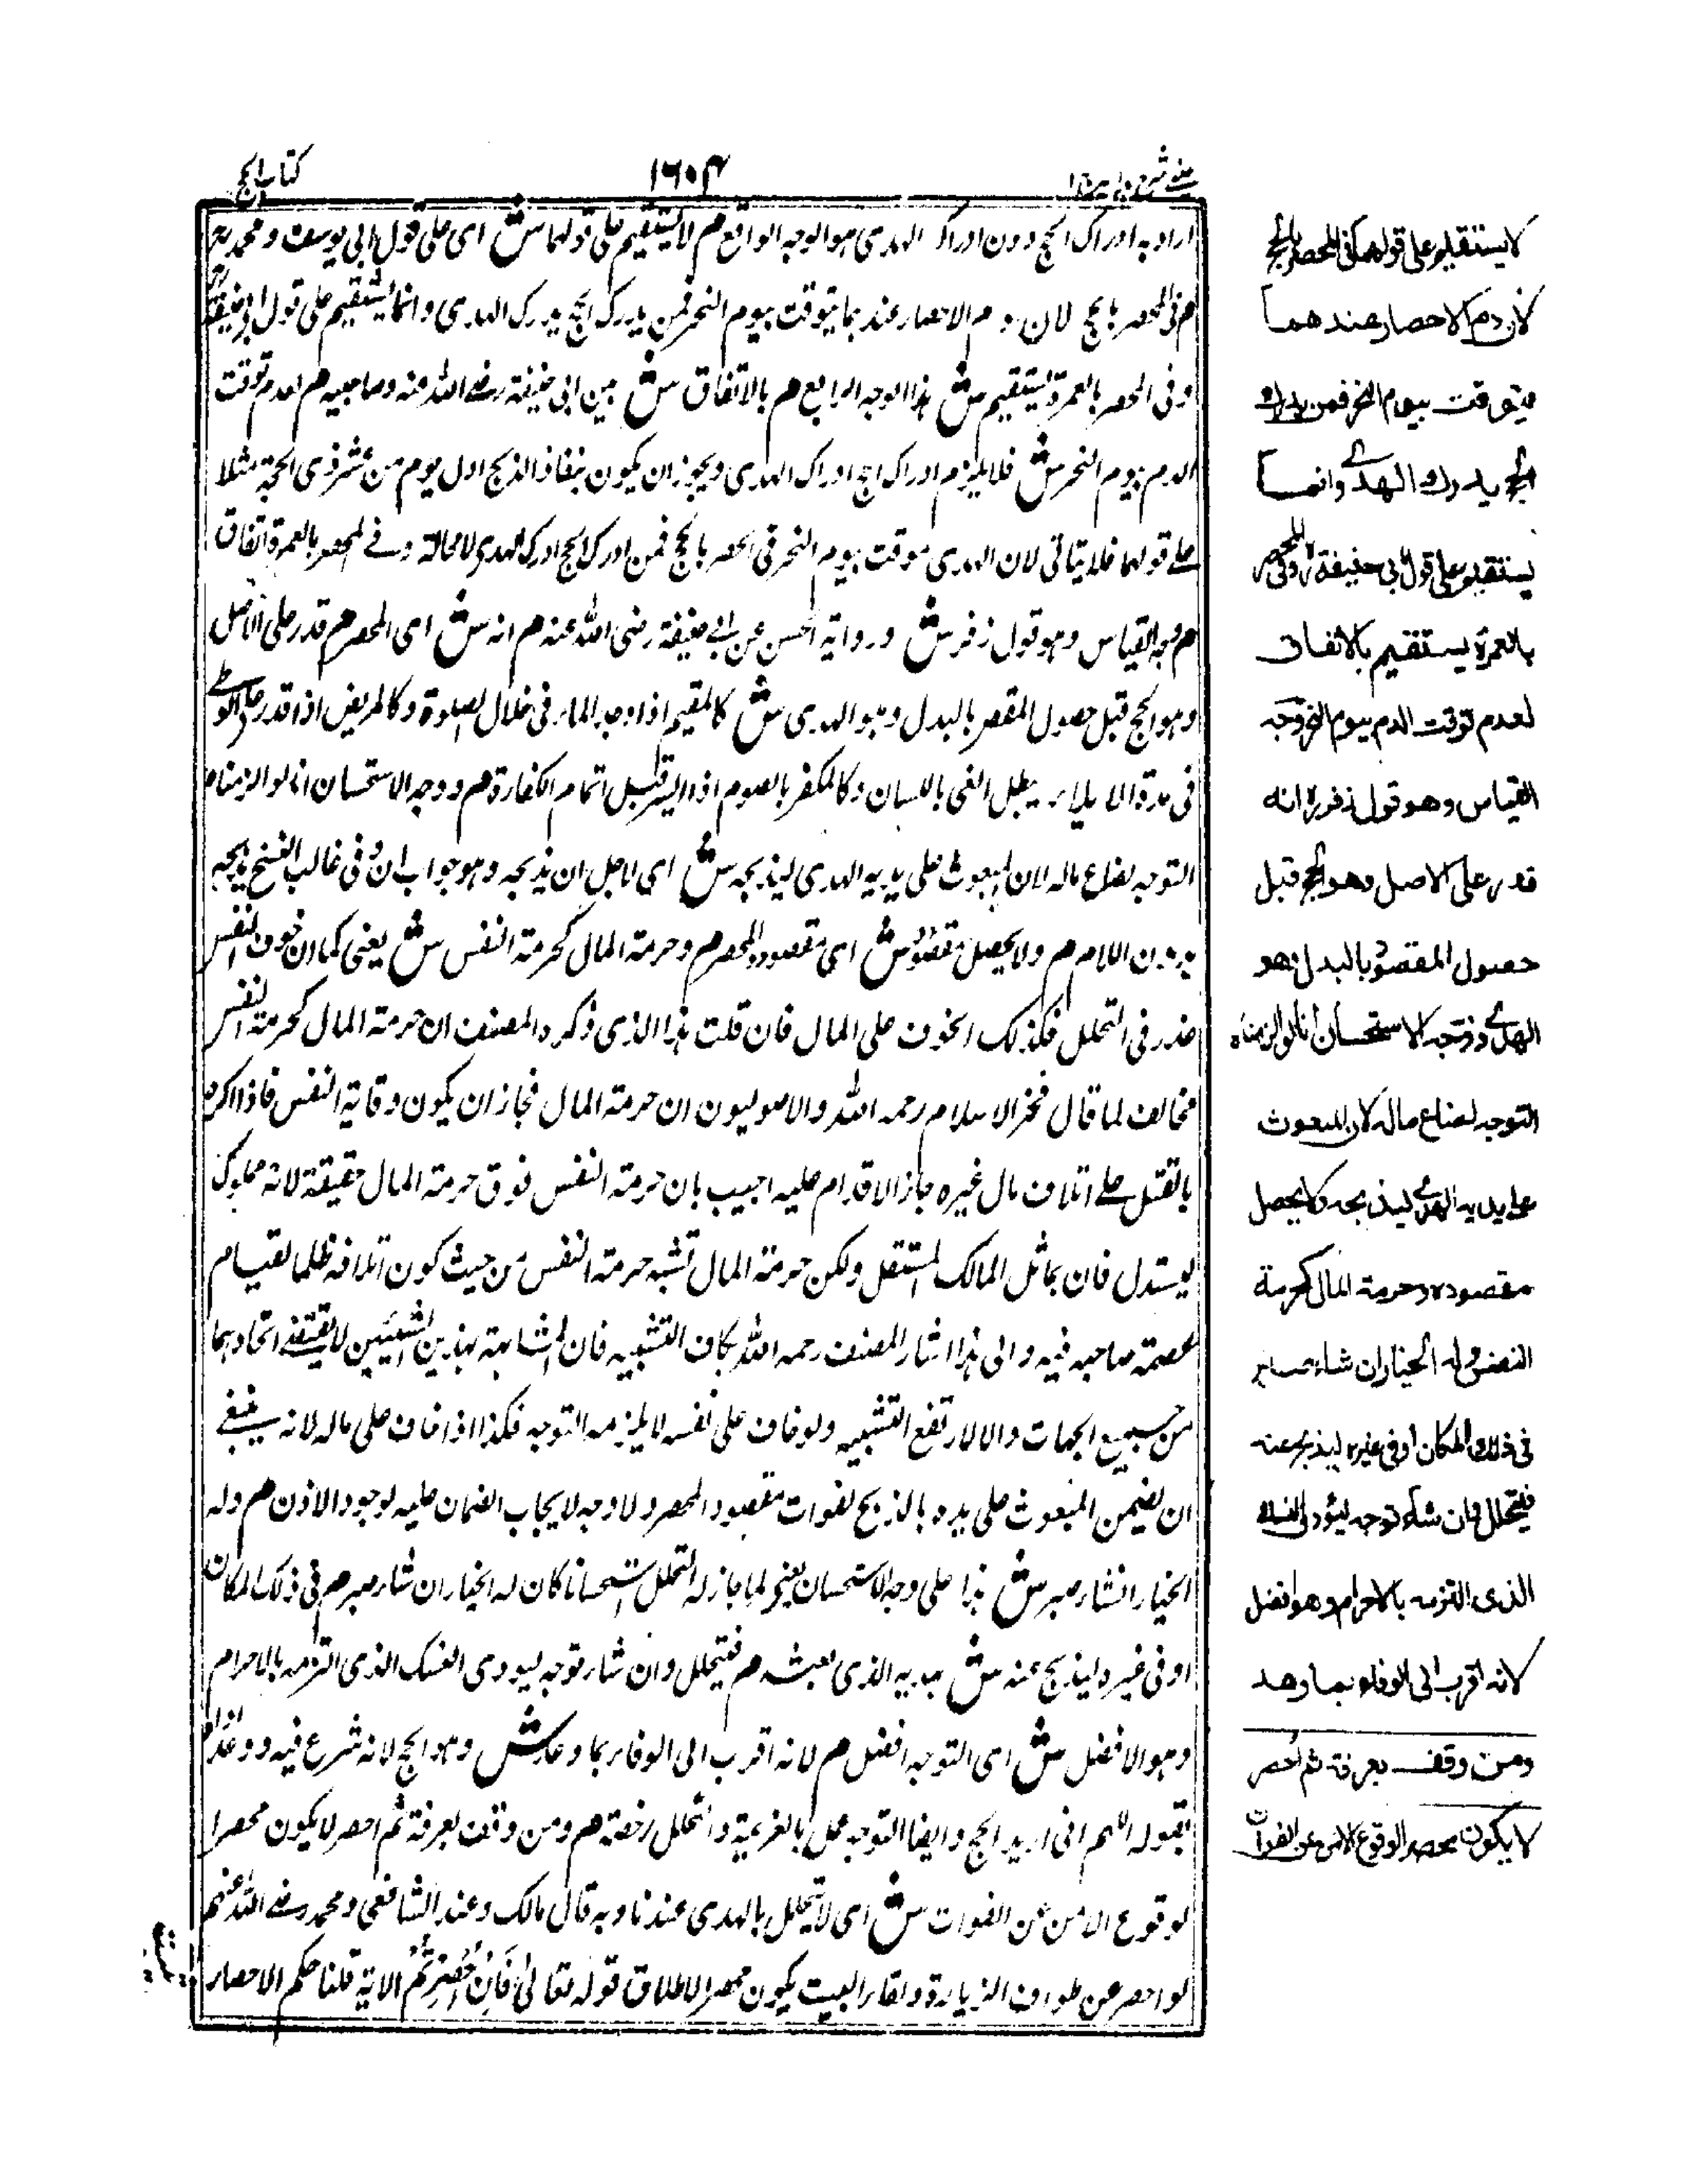 ١٦٠٤
كتاب الحج
اراد به ادراك الحج دون ادراك الهدى هو الوجه الواقع م لا يستقيم على قولهما ش اى على قول ابى يوسف و محمد
م فى المحصر بالحج لان دم الاحصار عندهما يتوقت بيوم النحر فمن يدرك الحج يدرك الهدى وانما يستقيم على قول ابى حنيفة
وفى المحصر بالعمرة يستقيم ش هذا الوجه الرابع م بالاتفاق ش بين ابى حنيفة رضى الله عنه وصاحبيه م لعدم توقت
الدم بيوم النحر ش فلا يلزم ادراك الحج ادراك الهدى ويجوز ان يكون بنفاذ الذبح اول يوم من عشر ذى الحجة مثلا
على قولهما فلا يتاتى لان الهدى موقت بيوم النحر فى المحصر بالحج فمن ادرك الحج ادرك الهدى لا محالة وفى المحصر بالعمرة اتفاق
م وجه القياس وهو قول زفر ش ورواية الحسن عن ابى حنيفة رضى الله عنه م انه ش اى المحصر م قدر على الاصل
وهو الحج قبل حصول المقصر بالبدل وهو الهدى ش كالمقيم اذا وجد الماء فى خلال الصلوة وكالمريض اذا قدر على الوطى
فى مدة الايلاء يبطل الفى باللسان وكالمكفر بالصوم اذا ايسر قبل اتمام الكفارة م ووجه الاستحسان انا لو الزمناه
التوجه لضاع ماله لان المبعوث على يديه الهدى ليذبحه ش اى لاجل ان يذبحه وهو جواب ان وفى غالب النسخ يذبحه
بدون اللام م ولا يحصل مقصوده ش اى مقصود المحصر م وحرمة المال كحرمة النفس ش يعنى كما ان خوف النفس
عذر فى التحلل فكذلك الخوف على المال فان قلت هذا الذى ذكره المصنف ان حرمة المال كحرمة النفس
مخالف لما قال فخر الاسلام رحمه الله والاصوليون ان حرمة المال فجاز ان يكون وقاية النفس فاذا اكره
بالقتل على اتلاف مال غيره جاز الاقدام عليه اجيب بان حرمة النفس فوق حرمة المال حقيقة لانه مملوك
فان يماثل المالك المستقل ولكن حرمة المال تشبه حرمة النفس من حيث كون اتلافه ظلما لقيام
عصمة صاحبه فيه والى هذا اشار المصنف رحمه الله بكاف التشبيه فان المشابهة بهذين الشيئين لا يقتضى اتحادهما
من جميع الجهات والا لارتفع التشبيه ولو خاف على نفسه لا يلزمه التوجه فكذا اذا خاف على ماله لانه ينبغى
ان يضمن المبعوث على يده بالذبح لفوات مقصود المحصر ولا وجه لايجاب الضمان عليه لوجود الاذن م وله
الخيار انشاء صبر ش هذا على وجه الاستحسان يعنى لما جاز له التحلل استحسانا كان له الخيار ان شاء صبر م فى ذلك المكان
او فى غيره ليذبح عنه ش هديه الذى بعثه م فيتحلل وان شاء توجه ليودى النسك الذى التزمه بالاحرام
وهو الافضل ش اى التوجه افضل م لانه اقرب الى الوفاء بما وعد ش وهو الحج لانه شرع فيه ووعد اداه
بقوله اللهم انى اريد الحج وايضا التوجه عمل بالعزيمة والتحلل رخصة م ومن وقف بعرفة ثم احصر لا يكون محصرا
لوقوع الامن عن الفوات ش اى لا يتحلل بالهدى عندنا وبه قال مالك وعند الشافعى ومحمد رضى الله عنهم
لو احصر عن طواف الزيارة ولقاء البيت يكون محصرا لاطلاق قوله تعالى فَاِنْ اُحْصِرْتُمْ الاية قلنا حكم الاحصار
لا يستقيم على قولهما فى المحصر بالحج
لان دم الاحصار عندهما
يتوقت بيوم النحر فمن يدرك
الحج يدرك الهدى وانما
يستقيم على قول ابى حنيفة وفى المحصر
بالعمرة يستقيم بالاتفاق
لعدم توقت الدم بيوم النحر وجه
القياس وهو قول زفر انه
قدر على الاصل وهو الحج قبل
حصول المقصود بالبدل وهو
الهدى ووجه الاستحسان انا لو الزمناه
التوجه لضاع ماله لان المبعوث
على يديه الهدى ليذبحه ولا يحصل
مقصوده وحرمة المال كحرمة
النفس وله الخيار ان شاء صبر
فى ذلك المكان او فى غيره ليذبح عنه
فيتحلل وان شاء توجه ليؤدى النسك
الذى التزمه بالاحرام وهو افضل
لانه اقرب الى الوفاء بما وعد
ومن وقف بعرفة ثم احصر
لا يكون محصرا لوقوع الامن عن الفوات